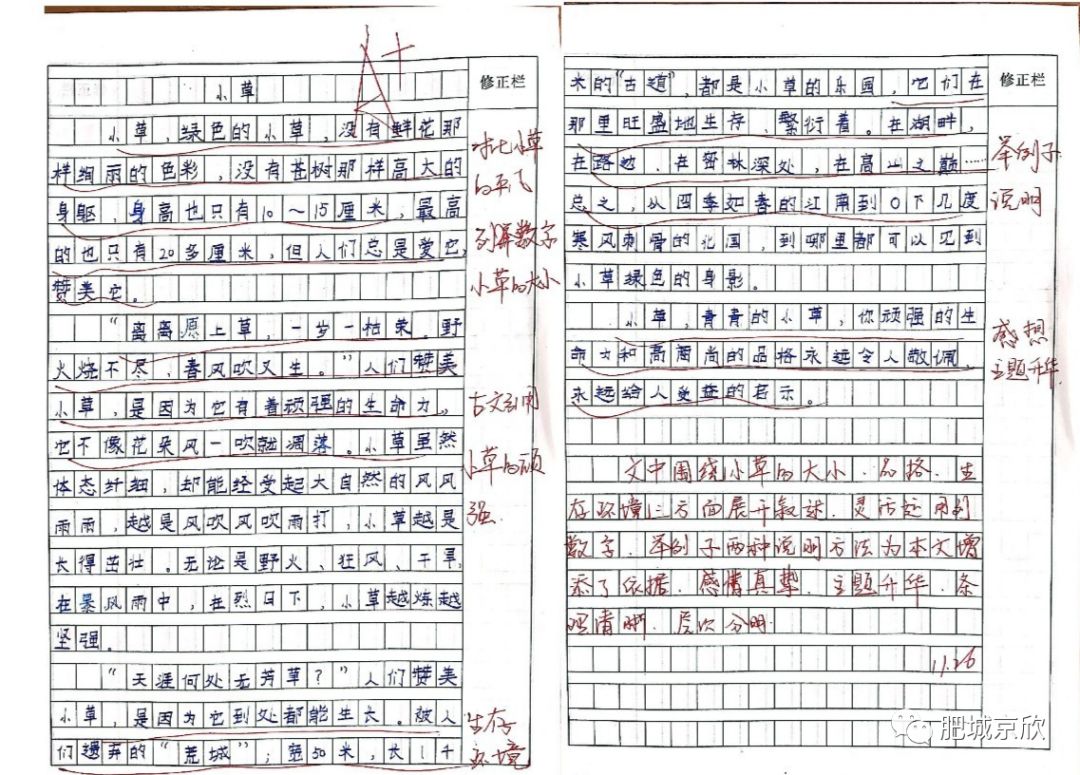 A+
修正栏
小草
小草，绿色的小草，没有鲜花那
样绚丽的色彩，没有苍树那样高大的
身躯，身高也只有10～15厘米，最高
的也只有20多厘米，但人们总是爱它，
赞美它。
“离离原上草，一岁一枯荣。野
火烧不尽，春风吹又生。”人们赞美
小草，是因为它有着顽强的生命力。
它不像花朵风一吹就凋落。小草虽然
体态纤细，却能经受起大自然的风风
雨雨，越是风吹风吹雨打，小草越是
长得茁壮。无论是野火、狂风、干旱，
在暴风雨中，在烈日下，小草越炼越
坚强。
“天涯何处无芳草？”人们赞美
小草，是因为它到处都能生长。被人
们遗弃的“荒城”；宽50米，长1千
对比小草
的平凡
列举数字
小草的大小
古文引用
小草的顽
强
生存
环境
修正栏
米的“古道”，都是小草的乐园，它们在
那里旺盛地生存、繁衍着。在湖畔，
在路边，在密林深处，在高山之巅……
总之，从四季如春的江南到0下几度
寒风刺骨的北国，到哪里都可以见到
小草绿色的身影。
小草，青青的小草，你顽强的生
命力和高尚的品格永远令人敬佩，
永远给人受益的启示。
举例子
说明
感想
主题升华
文中围绕小草的大小、品格、生
存环境三方面展开叙述，灵活运用列
数字、举例子两种说明方法为本文增
添了依据，感情真挚，主题升华，条
理清晰，层次分明。
11.26
肥城京欣